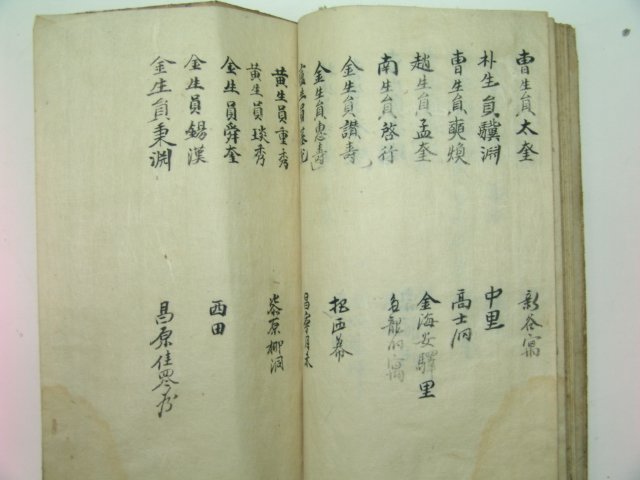 曺生員太奎 新谷寓
朴生員驥淵 中里
曺生員奭煥 高士洞
趙生員孟奎 金海安驛里
南生員啓行 龍洞寓
金生員讚壽 把西幕
金生員惠壽 昌寧月末
生員
黃生員重秀 漆原柳洞
黃生員琰秀
金生員舜奎 西田
金生員錫漢
金生員秉淵 昌原佳